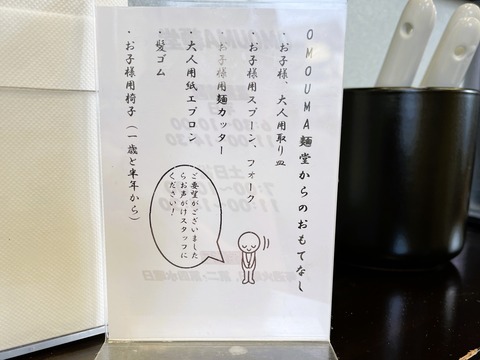 OMOUMA麺堂からのおもてなし
・お子様、大人用取り皿
・お子様用スプーン、フォーク
・お子様用麺カッター
・大人用紙エプロン
・髪ゴム
・お子様用椅子(一歳と半年から)
ご要望がございました
らお声がけスタッフに
ください!